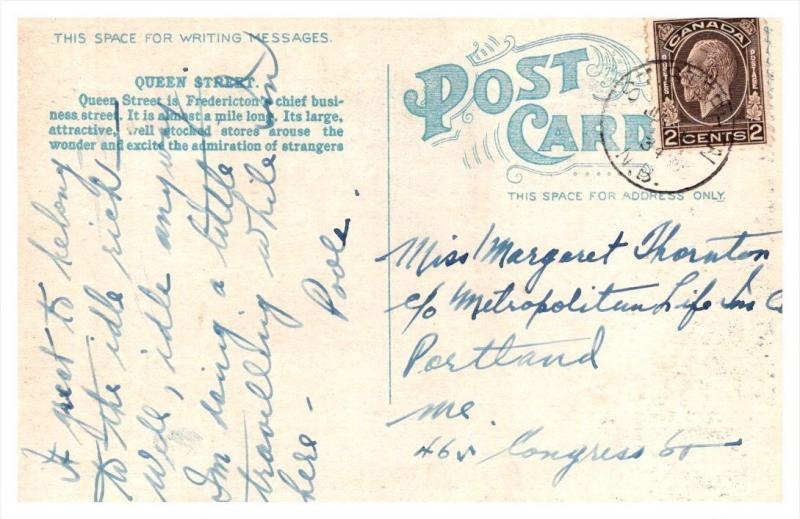 THIS SPACE FOR WRITING MESSAGES.
QUEEN STREET.
Queen Street is Fredericton's chief busi-
ness street. It is almost a mile long. Its large,
attractive, well stocked stores arouse the
wonder and excite the admiration of strangers
to belong
to the idle rich
Well, idle anyway
I'm doing a little
travelling while on
here -
Poole.
POST
CARD
THIS SPACE FOR ADDRESS ONLY.
CANADA
POSTES
POSTAGE
2 CENTS 2
N.B.
Miss Margaret Thornton
c/o Metropolitan Life Ins C
Portland
Me.
465 Congress St